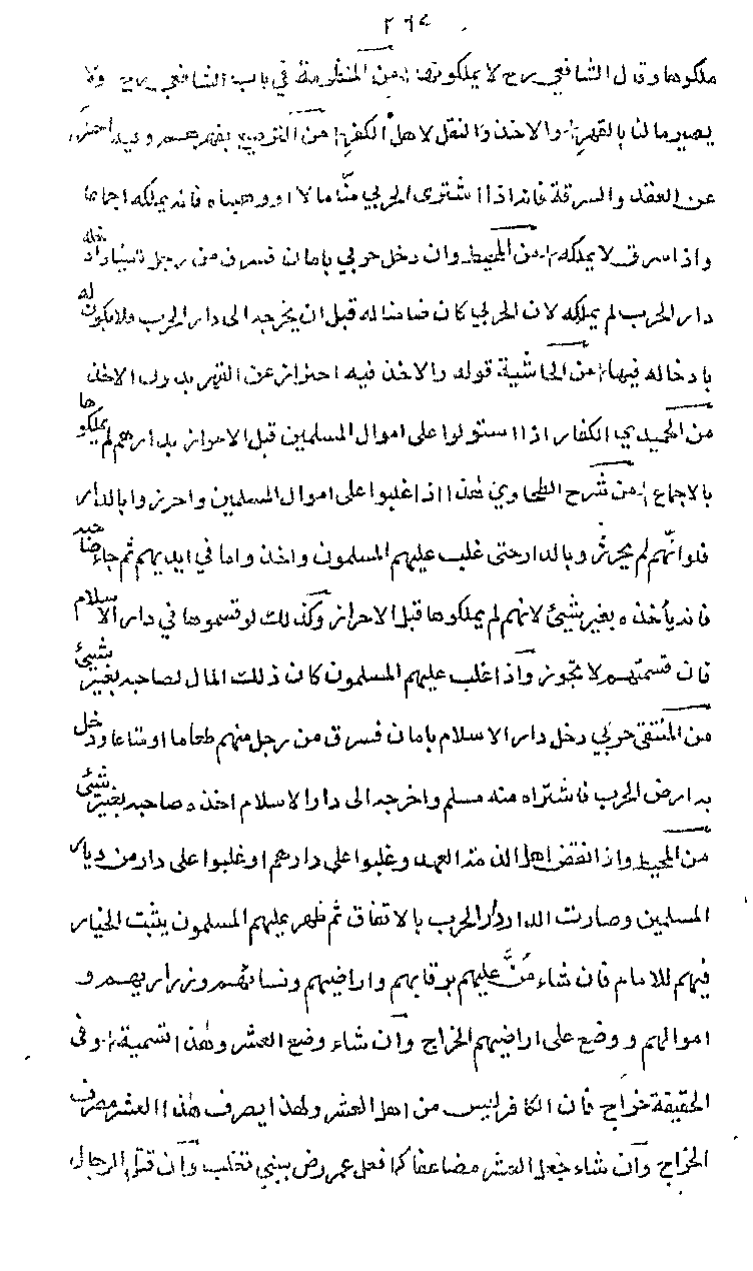 ٢٦٤
ملكوها وقال الشافعي رح لا يملكونها ا من المنظومة في باب الشافعي رح ولا
يصير مالنا بالقهر ا والاخذ والنقل لاهل الكفر ا من التوضيح بقهرهم وفيه احتراز
عن العقد والسرقة فانه اذا اشترى الحربي منا مالا او وهبناه فانه يملكه اجماعا
واذا سرق لا يملكه ا من المحيط وان دخل حربي بامان فسرق من رجل شيئا وادخله
دار الحرب لم يملكه لان الحربي كان ضامنا له قبل ان يخرجه الى دار الحرب فلا يكون له
بادخاله فيها ا من الحاشية قوله والاخذ فيه احتراز عن القهر بدون الاخذ
من الحميدي الكفار اذا استولوا على اموال المسلمين قبل الاحراز بدارهم لم يملكوها
بالاجماع ا من شرح الطحاوي هذا اذا غلبوا على اموال المسلمين واحرزوا بالدار
فلو انهم لم يحرزوا بالدار حتى غلب عليهم المسلمون واخذوا ما في ايديهم ثم جاء صاحبه
فانه يأخذه بغير شيئ لانهم لم يملكوها قبل الاحراز وكذلك لو قسموها في دار الاسلام
فان قسمتهم لا تجوز واذا غلب عليهم المسلمون كان ذلك المال لصاحبه بغير شيئ
من المنتقى حربي دخل دار الاسلام بامان فسرق من رجل منهم طعاما او متاعا ودخل
به ارض الحرب فاشتراه منه مسلم واخرجه الى دار الاسلام اخذه صاحبه بغير شيئ
من المحيط واذا نقض اهل الذمة العهد وغلبوا على دارهم او غلبوا على دار من ديار
المسلمين وصارت الدار دار الحرب بالاتفاق ثم ظهر عليهم المسلمون يثبت الخيار
فيهم للامام فان شاء من عليهم برقابهم واراضيهم ونسائهم وذراريهم و
اموالهم ووضع على اراضيهم الخراج وان شاء وضع العشر وهذا تسمية ا وفى
الحقيقة خراج فان الكافر ليس من اهل العشر ولهذا يصرف هذا العشر مصرف
الخراج وان شاء جعل العشر مضاعفا كما فعل عمر رض ببني تغلب وان قتل الرجال